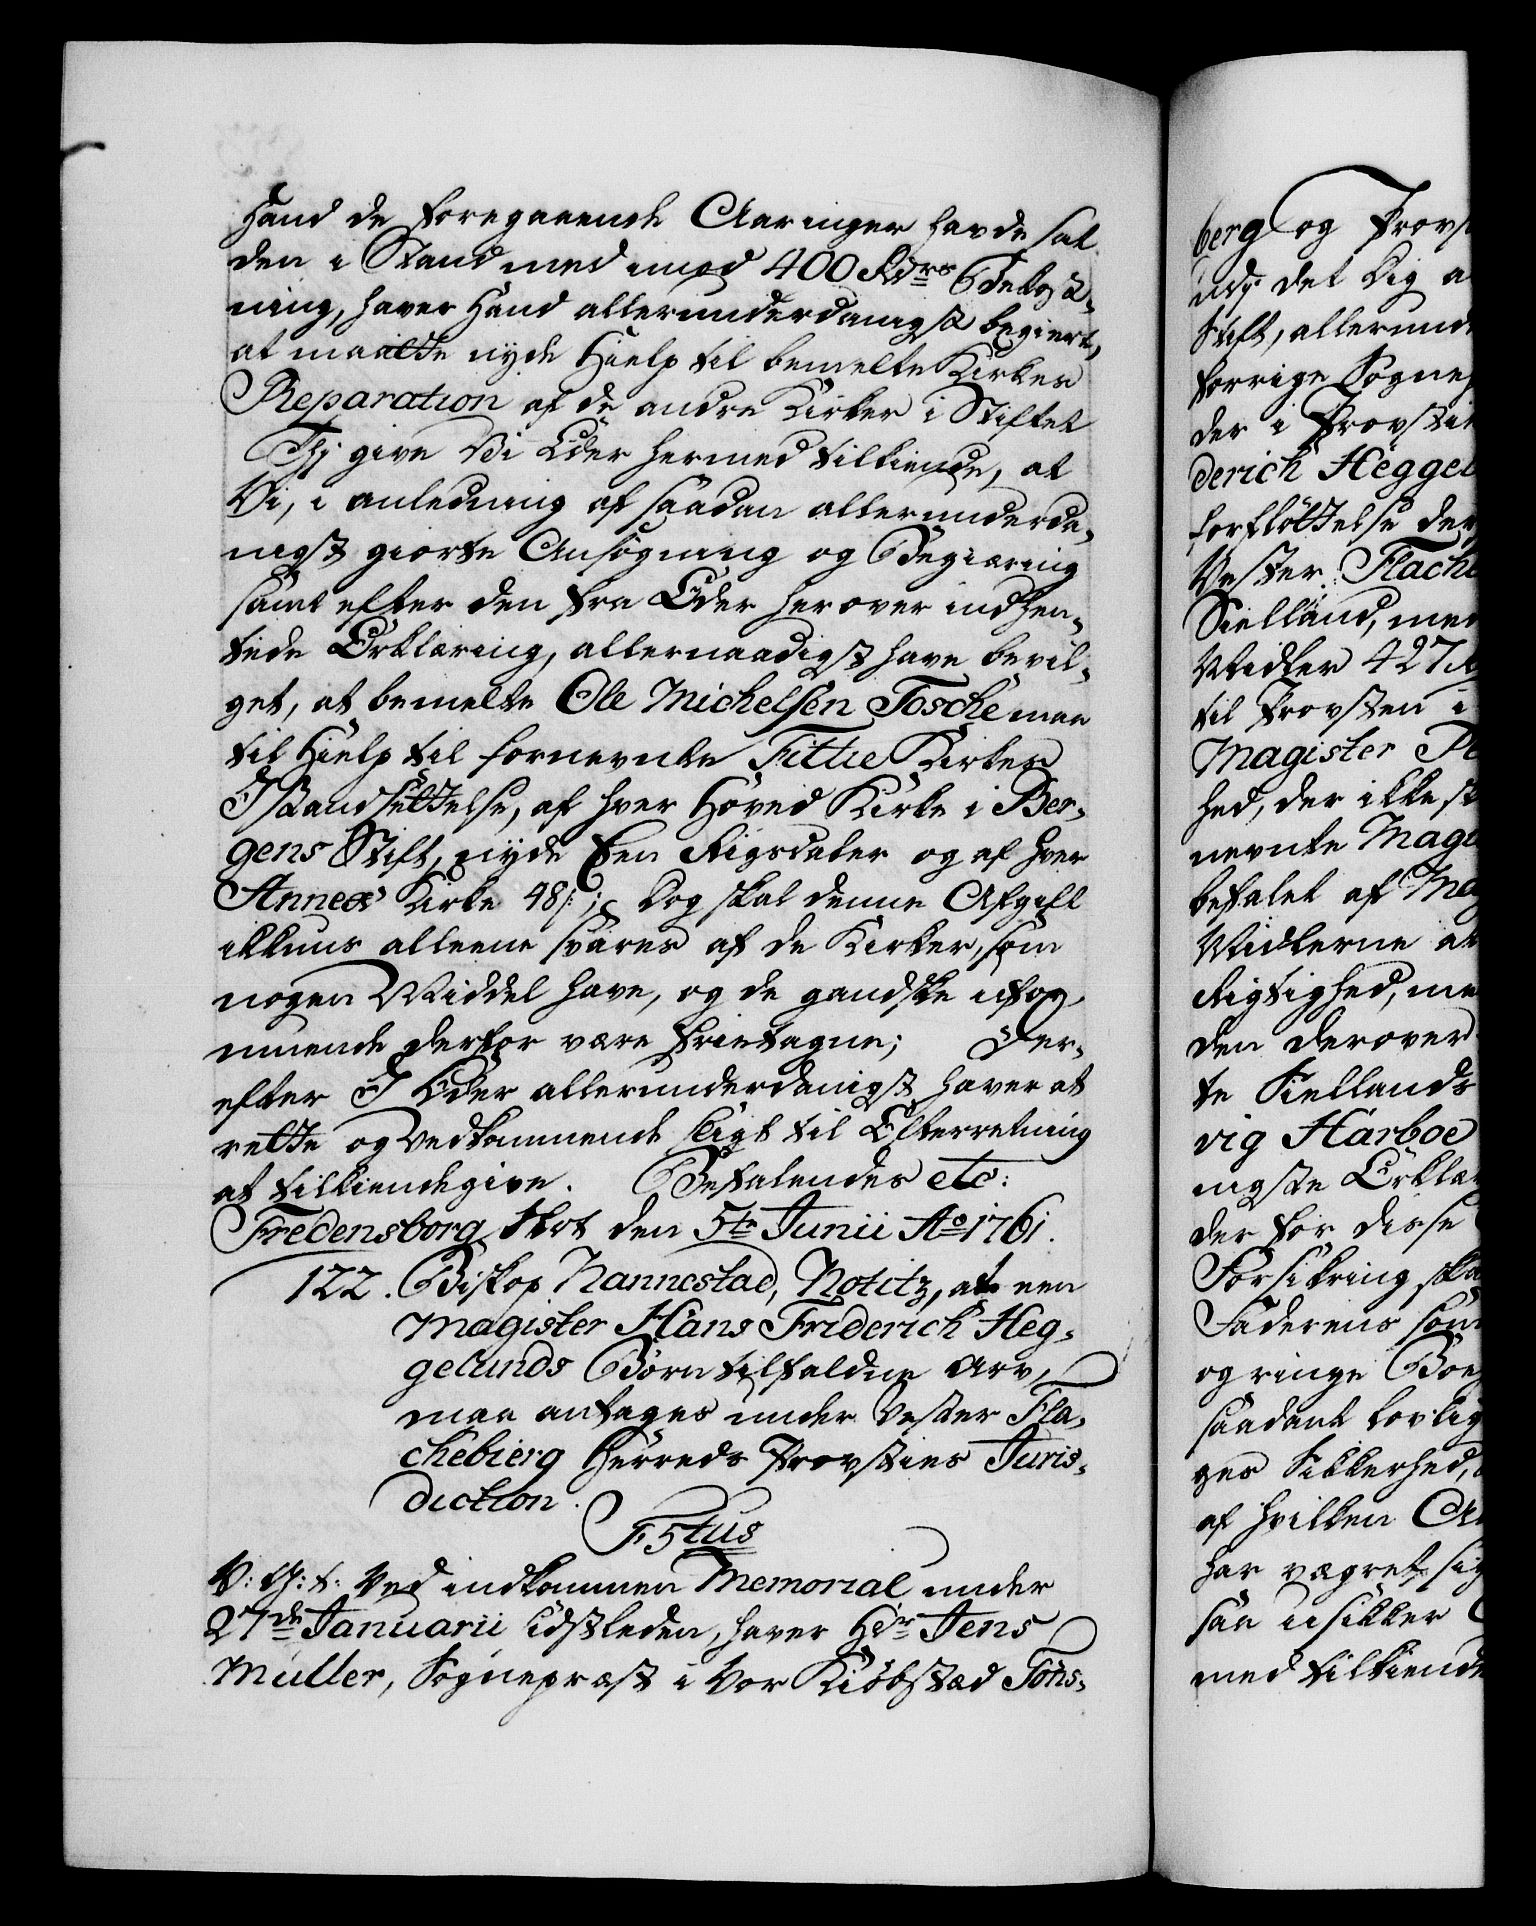 Hand de foregaaende Aaringer havde sat
den i Stand med imod 400 Rdrs Bekost-
ning, haver Hand allerunderdanigst begiert,
at maatte nyde Hielp til bemelte Kirkes
Reparation af de andre Kirker i Stiftet
Thj give Vi Eder hermed tilkiende, at
Vi, i anledning af saadan allerunderda-
nigst giorte Ansøgning og Begiæring
samt efter den fra Eder herover indhen-
tede Erklæring, allernaadigst have bevil-
get, at bemelte Ole Michelsen Tosche maa
til Hielp til fornevnte Fittie Kirkes
Istandsættelse, af hver Hoved Kirke i Ber-
gens Stift, nyde Een Rigsdaler og af hver
Annex Kirke 48 s:; Dog skal denne Afgift
ikkuns alleene svares af de Kirker, som
nogen Middel have, og de gandske ufor-
muende derfor være frietagne; Der-
efter I Eder allerunderdanigst haver at
rette og vedkommende sligt til Efterretning
at tilkiendegive. Befalendes etc:
Fredensborg Slot den 5te Junii Ao 1761.
122. Biskop Nannestad, Notitz, at een
Magister Hans Friderich Heg-
gelunds Børn tilfaldne Arv,
maa antages under Vester Fla-
chebierg Herreds Provsties Juris-
diction.
F5tus
V: G: t: Ved indkommen Memorial under
27de Januarii sidstleden, haver Hdr Jens
Müller, Sognepræst i Vor Kiøbstæd Töns-
berg og Provst
indj. det Dig a
Stift, allerund
forrige Sognep
der i Provstie
derich Heggel
forflöttelse der
Vester Flach
Sielland, med
Midler 427
til Provsten i
Magister Pe
hed, der ikke s
nevnte Magi
befalet af Mag
Midlerne at
Rigtighed, me
den derover
te Siellands
vig Harboe
nigste Erklæ
der for disse
Forsikring ska
Faderens som
og ringe Boe
saadant lovlig
ges Sikkerhed,
af hvilken A
har vægret sig
saa usikker
med tilkiende